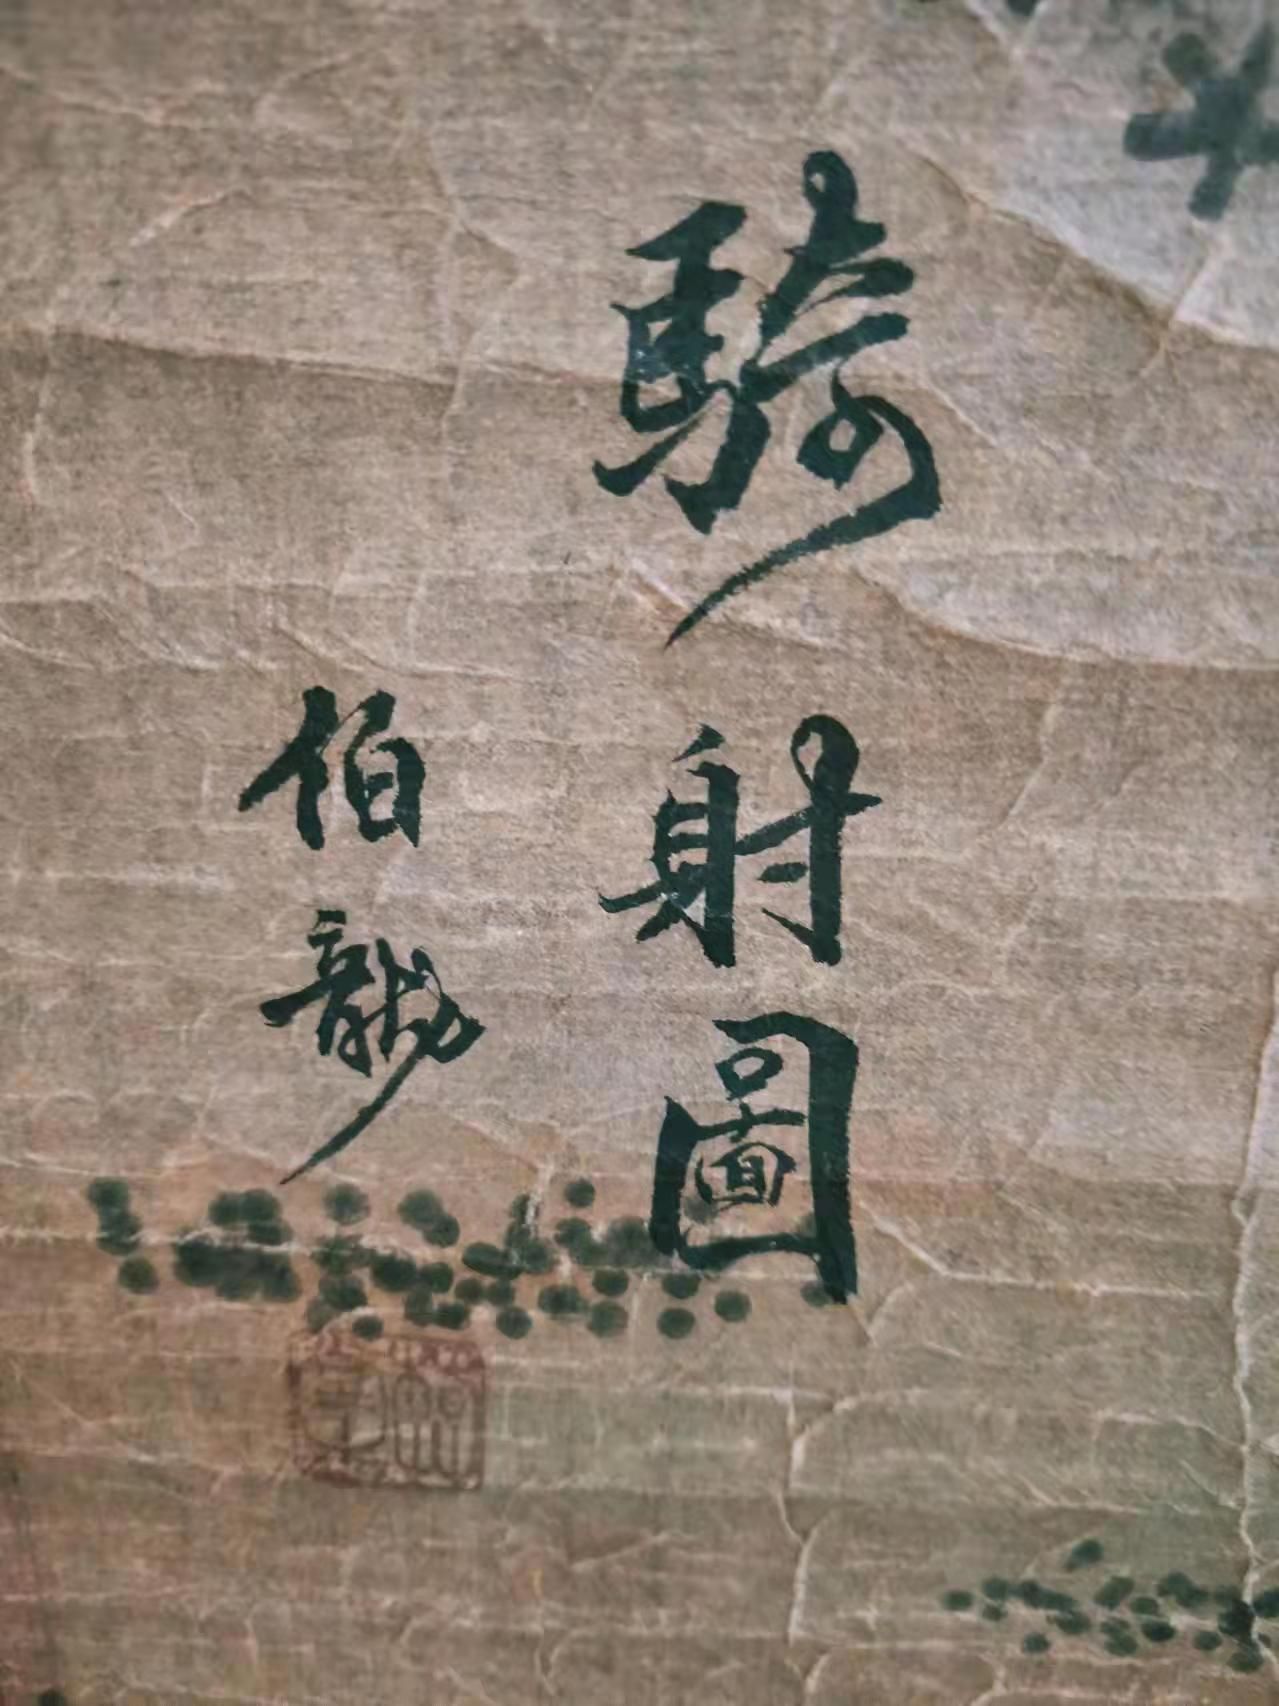 騎射圖
伯龍